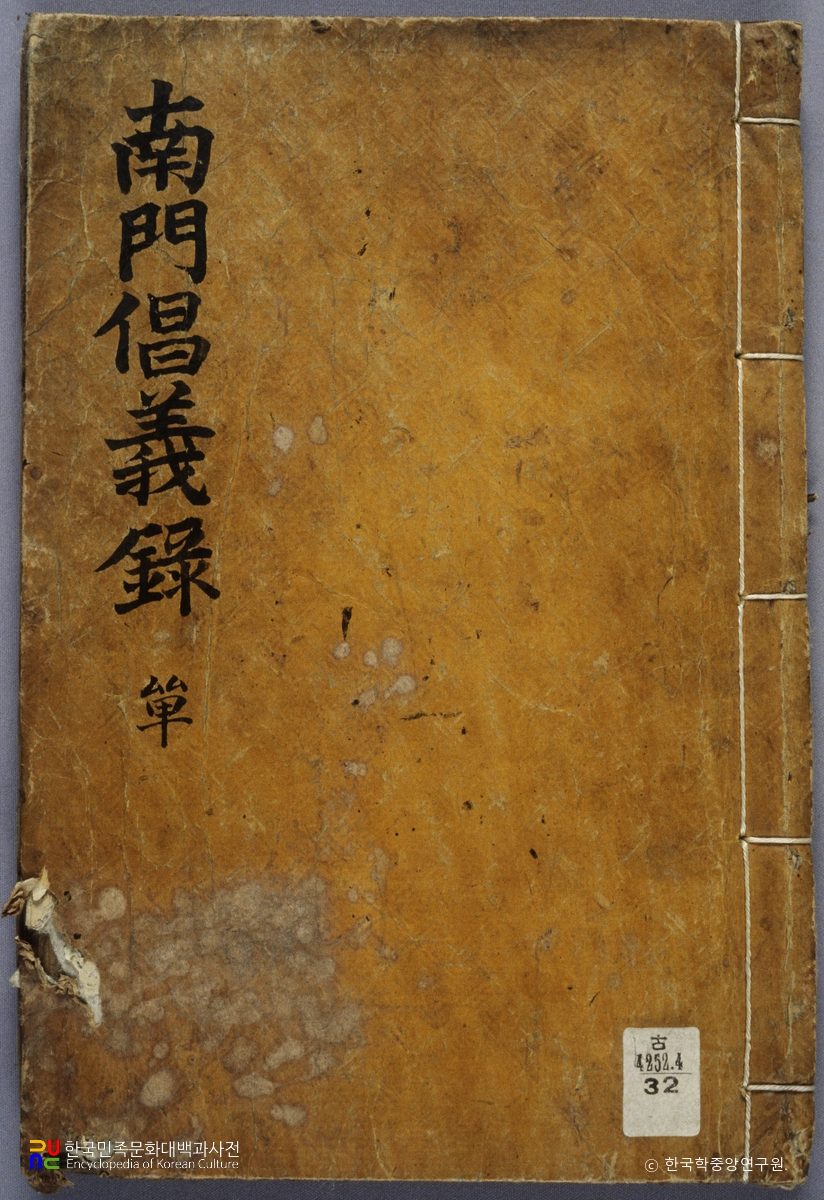 南門倡義錄
單
古
4252.4
32
한국민족문화대백과사전
Encyclopedia of Korean Culture
© 한국학중앙연구원.